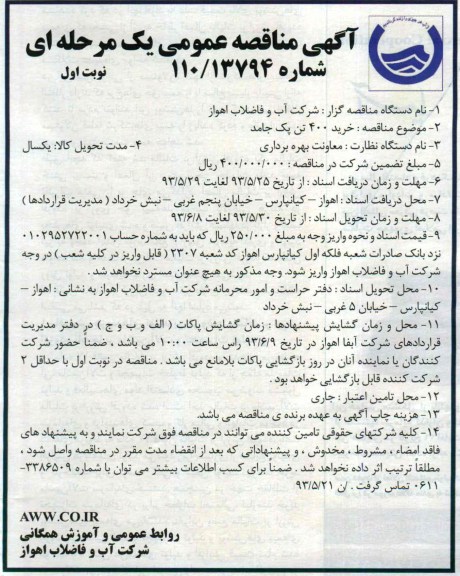 آگهی مناقصه عمومی یک مرحله ای
شماره ۱۱۰/۱۳۷۹۴
نوبت اول
۱- نام دستگاه مناقصه گزار : شرکت آب و فاضلاب اهواز
۲- موضوع مناقصه : خرید ۴۰۰ تن پک جامد
۳- نام دستگاه نظارت : معاونت بهره برداری ۴- مدت تحویل کالا: یکسال
۵- مبلغ تضمین شرکت در مناقصه : ۴۰۰/۰۰۰/۰۰۰ ریال
۶- مهلت و زمان دریافت اسناد : از تاریخ ۹۳/۵/۲۵ لغایت ۹۳/۵/۲۹
۷- محل دریافت اسناد : اهواز – کیانپارس – خیابان پنجم غربی – نبش خرداد ( مدیریت قراردادها )
۸- مهلت و زمان تحویل اسناد : از تاریخ ۹۳/۵/۳۰ لغایت ۹۳/۶/۸
۹- قیمت اسناد و نحوه واریز وجه به مبلغ ۲۵۰/۰۰۰ ریال که باید به شماره حساب ۰۱۰۲۹۵۲۷۲۲۰۰۱
نزد بانک صادرات شعبه فلکه اول کیانپارس اهواز کد شعبه ۲۳۰۷ ( قابل واریز در کلیه شعب ) در وجه
شرکت آب و فاضلاب اهواز واریز شود. وجه مذکور به هیچ عنوان مسترد نخواهد شد .
۱۰- محل تحویل اسناد : دفتر حراست و امور محرمانه شرکت آب و فاضلاب اهواز به نشانی : اهواز –
کیانپارس – خیابان ۵ غربی – نبش خرداد
۱۱- محل و زمان گشایش پیشنهادها : زمان گشایش پاکات ( الف و ب و ج ) در دفتر مدیریت
قراردادهای شرکت آبفا اهواز در تاریخ ۹۳/۶/۹ راس ساعت ۱۰:۰۰ می باشد ، ضمناً حضور شرکت
کنندگان یا نماینده آنان در روز بازگشایی پاکات بلامانع می باشد . مناقصه در نوبت اول با حداقل ۲
شرکت کننده قابل بازگشایی خواهد بود .
۱۲- محل تامین اعتبار : جاری
۱۳- هزینه چاپ آگهی به عهده برنده ی مناقصه می باشد.
۱۴- کلیه شرکتهای حقوقی تامین کننده می توانند در مناقصه فوق شرکت نمایند و به پیشنهاد های
فاقد امضاء ، مشروط ، مخدوش ، و پیشنهاداتی که بعد از انقضاء مدت مقرر در مناقصه واصل شود ،
مطلقاً ترتیب اثر داده نخواهد شد . ضمناً برای کسب اطلاعات بیشتر می توان با شماره ۳۳۸۶۵۰۹-
۰۶۱۱ تماس گرفت . /ن ۹۳/۵/۲۱
AWW.CO.IR
روابط عمومی و آموزش همگانی
شرکت آب و فاضلاب اهواز